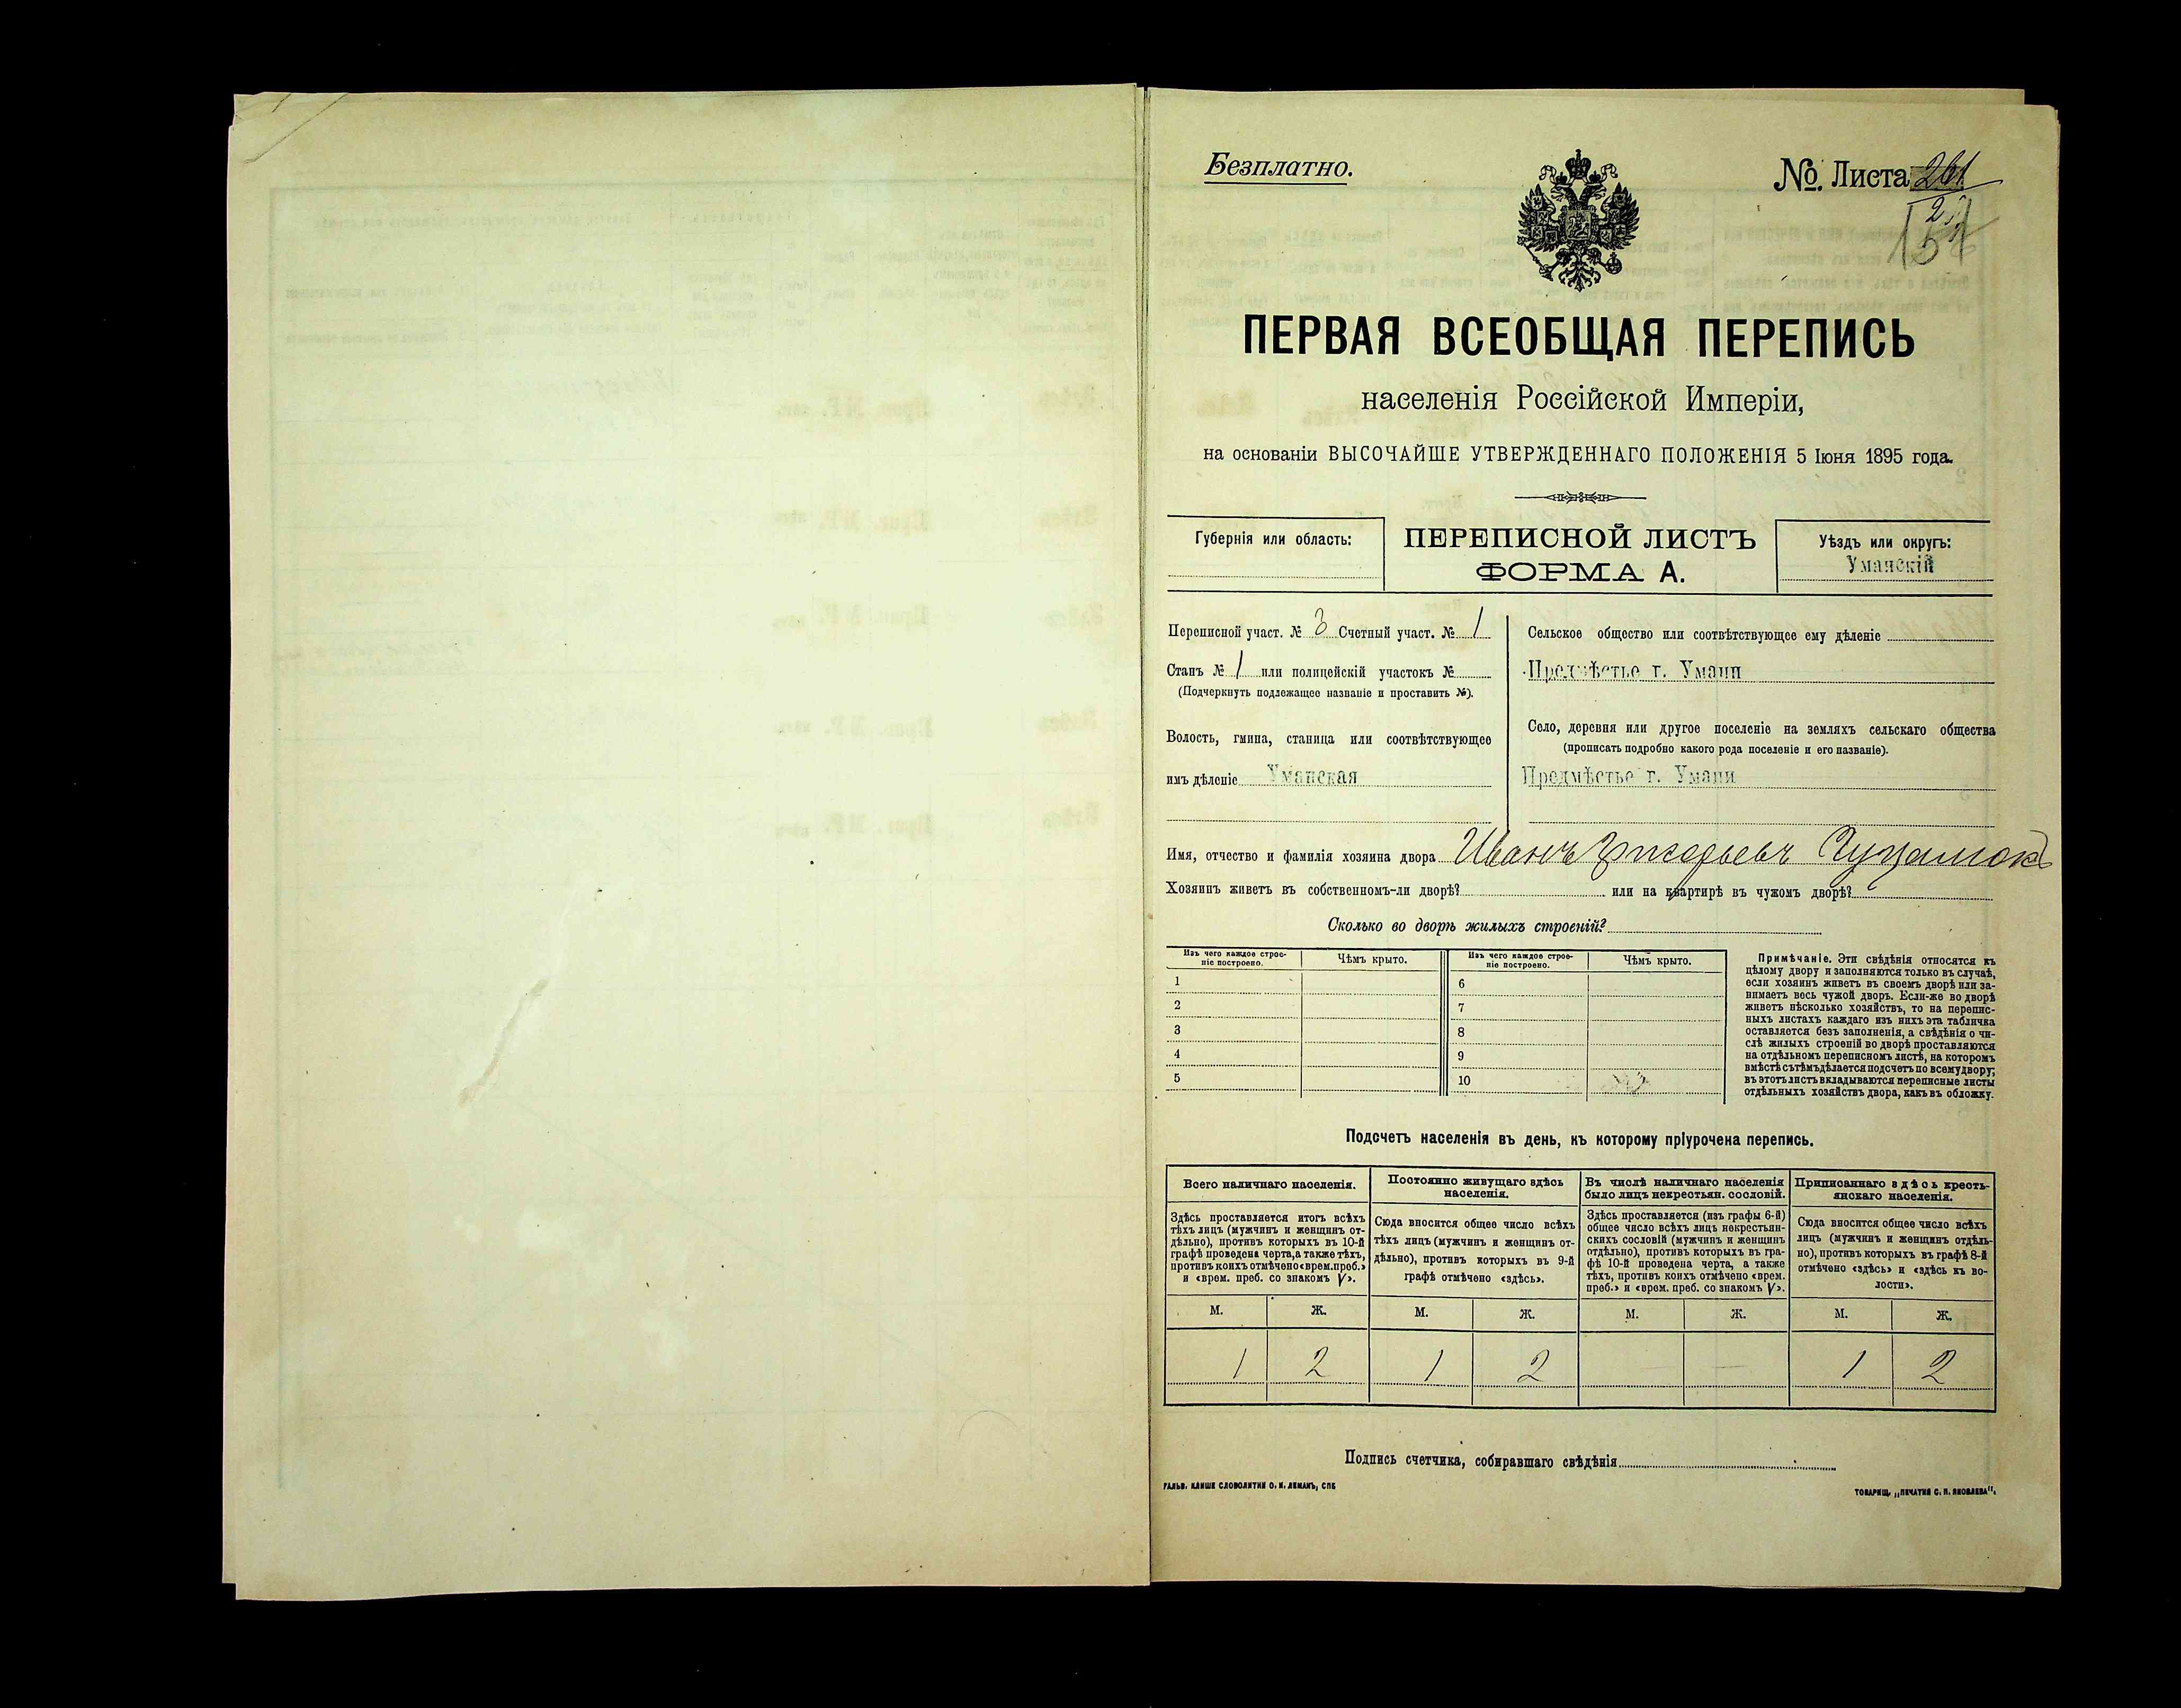 Безплатно.
№. Листа 261
ПЕРВАЯ ВСЕОБЩАЯ ПЕРЕПИСЬ
населенія Россійской Имперіи,
на основаніи ВЫСОЧАЙШЕ УТВЕРЖДЕННАГО ПОЛОЖЕНІЯ 5 Іюня 1895 года.
Губернія или область:
ПЕРЕПИСНОЙ ЛИСТЪ
ФОРМА А.
Уѣздъ или округъ:
Уманскій
Переписной участ. № 3 Счетный участ. № 1
Станъ № 1 или полицейскій участокъ №
(Подчеркнуть подлежащее названіе и проставить №).
Волость, гмина, станица или соотвѣтствующее
имъ дѣленіе Уманская
Сельское общество или соотвѣтствующее ему дѣленіе
Предмѣстье г. Умани
Село, деревня или другое поселеніе на земляхъ сельскаго общества
(прописать подробно какого рода поселеніе и его названіе).
Предмѣстье г. Умани
Имя, отчество и фамилія хозяина двора Иванъ Григорьевъ
Хозяинъ живетъ въ собственномъ-ли дворѣ? или на квартирѣ въ чужомъ дворѣ?
Сколько во дворѣ жилыхъ строеній?
Изъ чего каждое строе-
ніе построено.
Чѣмъ крыто.
1
2
3
4
5
Изъ чего каждое строе-
ніе построено.
Чѣмъ крыто.
6
7
8
9
10
Примѣчаніе. Эти свѣдѣнія относятся къ
цѣлому двору и заполняются только въ случаѣ,
если хозяинъ живетъ въ своемъ дворѣ или за-
нимаетъ весь чужой дворъ. Если-же во дворѣ
живетъ нѣсколько хозяйствъ, то на перепис-
ныхъ листахъ каждаго изъ нихъ эта табличка
оставляется безъ заполненія, а свѣдѣнія о чи-
слѣ жилыхъ строеній во дворѣ проставляются
на отдѣльномъ переписномъ листѣ, на которомъ
вмѣстѣ съ тѣмъ дѣлается подсчетъ по всему двору;
въ этотъ листъ вкладываются переписные листы
отдѣльныхъ хозяйствъ двора, какъ въ обложку.
Подсчетъ населенія въ день, къ которому пріурочена перепись.
Всего наличнаго населенія.
Здѣсь проставляется итогъ всѣхъ
тѣхъ лицъ (мужчинъ и женщинъ от-
дѣльно), противъ которыхъ въ 10-й
графѣ проведена черта, а также тѣхъ,
противъ коихъ отмѣчено «врем. преб.»
и «врем. преб. со знакомъ V».
М. Ж.
1 2
Постоянно живущаго здѣсь
населенія.
Сюда вносится общее число всѣхъ
тѣхъ лицъ (мужчинъ и женщинъ от-
дѣльно), противъ которыхъ въ 9-й
графѣ отмѣчено «здѣсь».
М. Ж.
1 2
Въ числѣ наличнаго населенія
было лицъ некрестьян. сословій.
Здѣсь проставляется (изъ графы 6-й)
общее число всѣхъ лицъ некрестьян-
скихъ сословій (мужчинъ и женщинъ
отдѣльно), противъ которыхъ въ гра-
фѣ 10-й проведена черта, а также
тѣхъ, противъ коихъ отмѣчено «врем.
преб.» и «врем. преб. со знакомъ V».
М. Ж.
— —
Приписаннаго здѣсь кресть-
янскаго населенія.
Сюда вносится общее число всѣхъ
лицъ (мужчинъ и женщинъ отдѣль-
но), противъ которыхъ въ графѣ 8-й
отмѣчено «здѣсь» и «здѣсь къ во-
лости».
М. Ж.
1 2
Подпись счетчика, собиравшаго свѣдѣнія
ГАЛЬВ. КЛИШЕ СЛОВОЛИТНИ О. И. ЛЕМАНЪ, СПБ
ТОВАРИЩ. „ПЕЧАТНЯ С. П. ЯКОВЛЕВА".